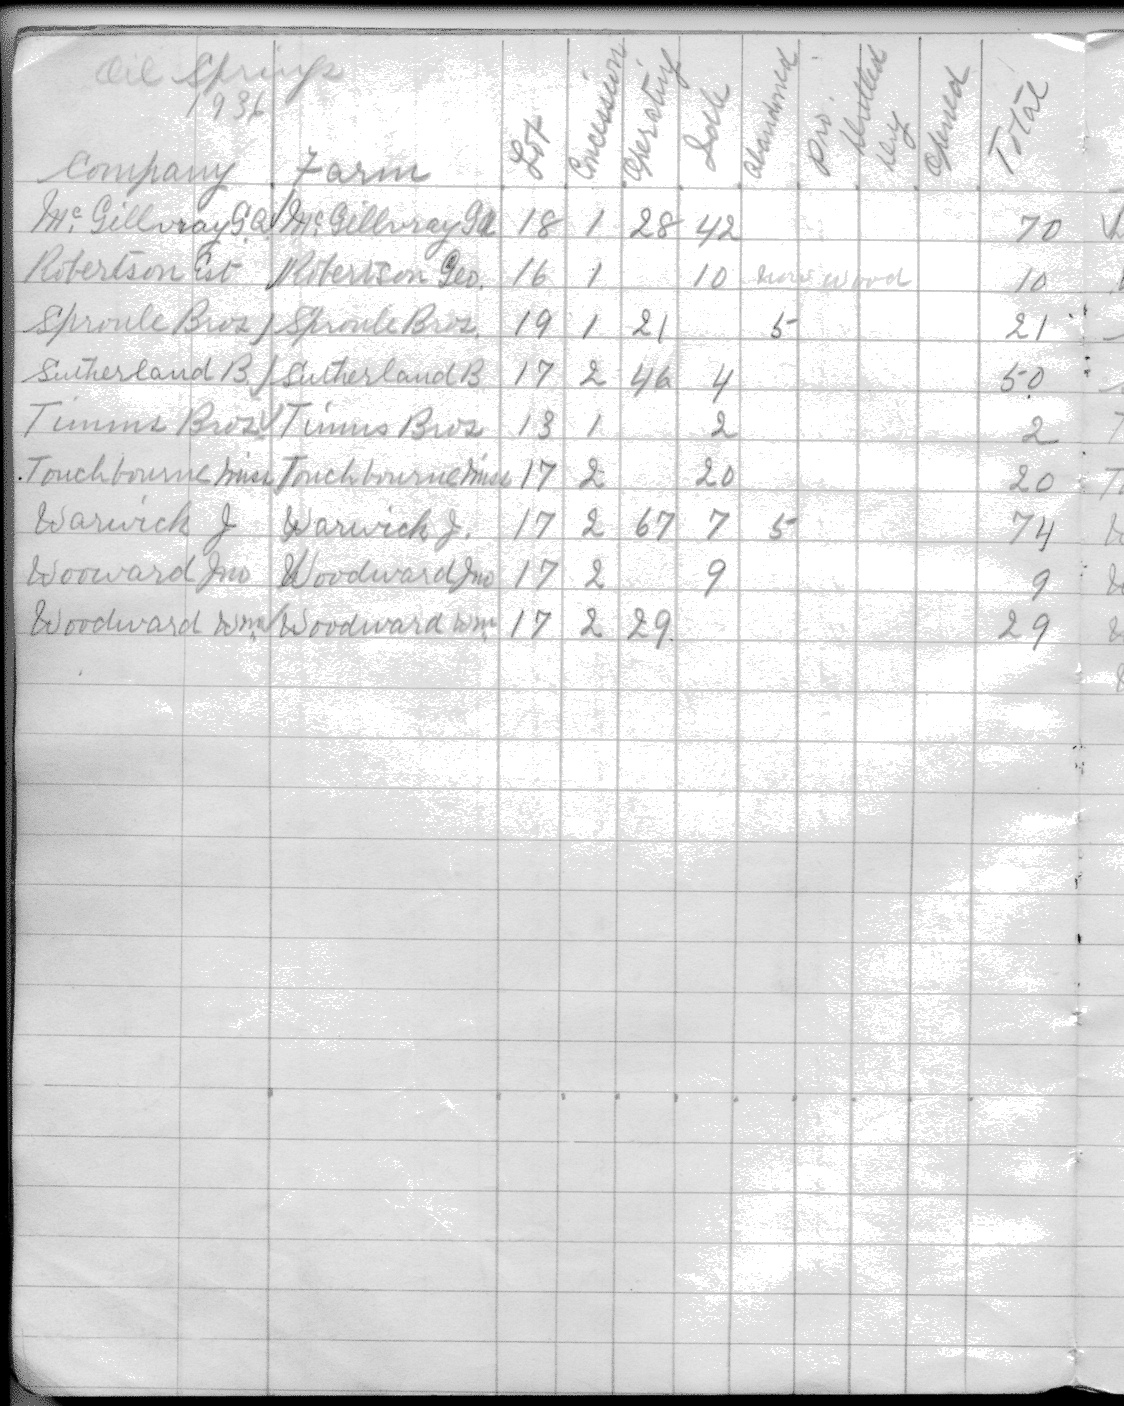 Oil Springs
1936
Company Farm Lot Concession Operating Idle abandoned pro. by opened Total
Mc. Gillvray G.A. Mc. Gillvray GA 18 1 28 42 70
Robertson Est Robertson Geo. 16 1 10 now wood 10
Sproule Bros Sproule Bros. 19 1 21 5 21
Sutherland B Sutherland B 17 2 46 4 50
Timms Bros Timms Bros 13 1 2 2
Touchbourne Miss Touchbourne Miss 17 2 20 20
Warwick J Warwick J. 17 2 67 7 5 74
Wooward Jno Woodward Jno 17 2 9 9
Woodward Wm Woodward Wm 17 2 29 29